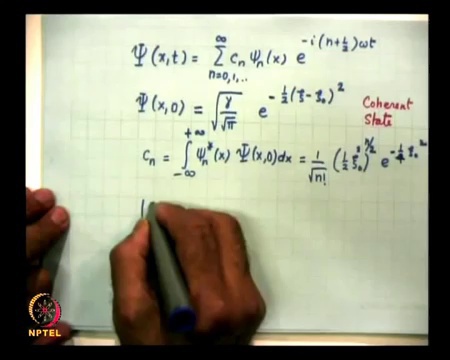 Ψ(x,t) = ∑_{n=0,1,..}^{∞} c_n ψ_n(x) e^{-i(n+½)ωt}
Ψ(x,0) = √(γ/√π) e^{-½(ξ-ξ₀)²} Coherent State
c_n = ∫_{-∞}^{+∞} ψ_n*(x) Ψ(x,0)dx = 1/√n! (½ξ₀²)^{n/2} e^{-¼ξ₀²}
NPTEL